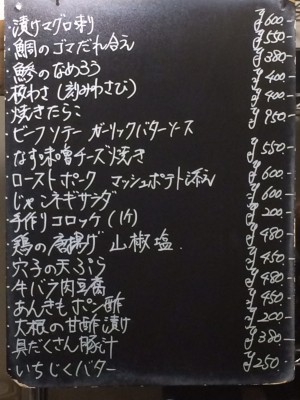 ・漬けマグロ刺し ¥600
・鯛のゴマだれ合え ¥550
・鯵のなめろう ¥380
・板わさ(刻みわさび) ¥400
・焼きたらこ ¥400
・ビーフソテー ガーリックバターソース ¥950
・なす味噌チーズ焼き ¥550
・ローストポーク マッシュポテト添え ¥600
・じゃこネギサラダ ¥600
・手作りコロッケ(1ケ) ¥200
・鶏の唐揚げ 山椒塩 ¥480
・穴子の天ぷら ¥450
・牛バラ肉豆腐 ¥480
・あんきもポン酢 ¥450
・大根の甘酢漬け ¥200
・具だくさん豚汁 ¥380
・いちじくバター ¥250